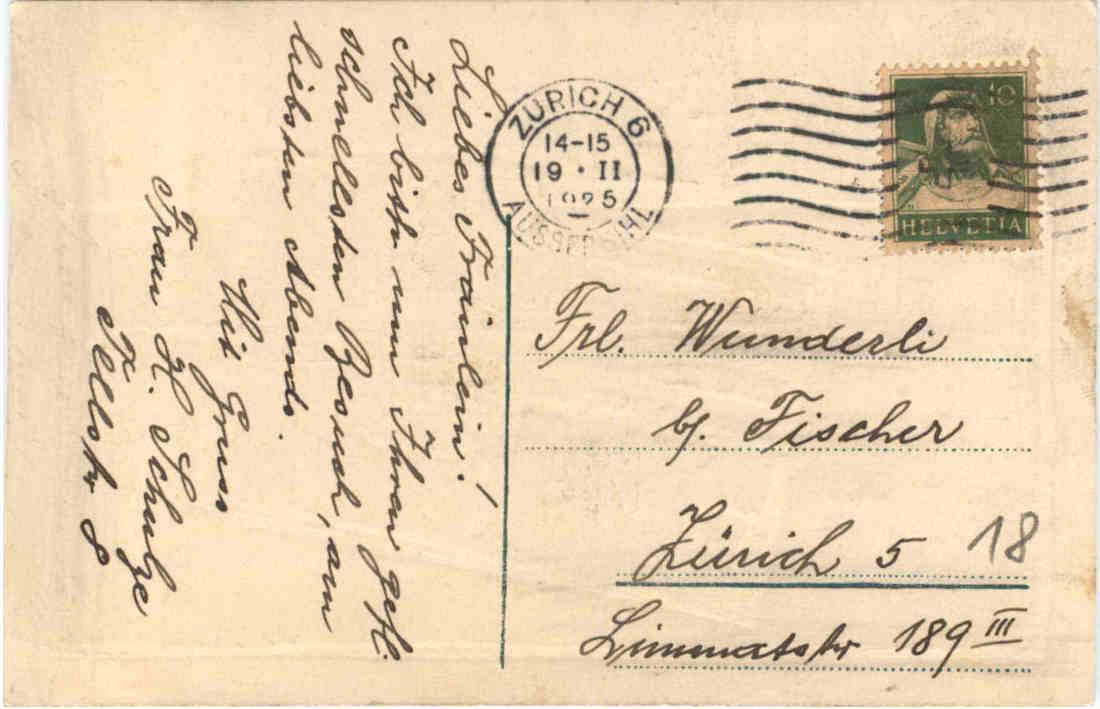 Liebes Fräulein!
Ich bitte um Ihren gefl.
schnellsten Besuch, am
liebsten Abends.
Mit Gruss
Frau H. Schulze
Tellstr 8
ZÜRICH 6
14-15
19 · II
1925
AUSSERSIHL
10
HELVETIA
Frl. Wunderli
bj. Fischer
Zürich 5
18
Limmatstr 189 III